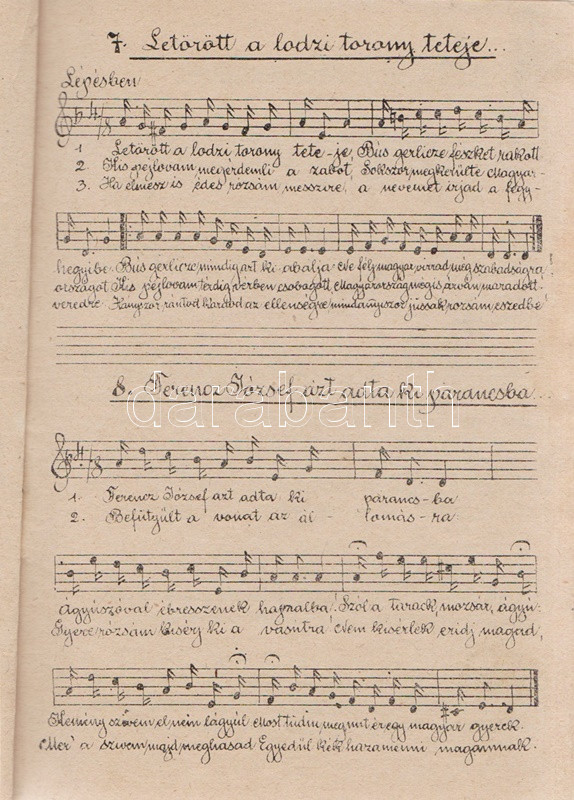 7. Letörött a lodzi torony teteje...
Lépésben
1 Letörött a lodzi torony tete-je, Bús gerlicze fészket rakott
2 Kis pejlovam megérdemli a zabot, Sokszor megkerülte Magyar-
3. Ha elmész is édes rózsám messzire, a nevemet irjad a fegy-
hegyibe. Bús gerlicze, mindig azt ki-abálja Ne félj magyar, virrad még szabadságra
országot Kis pejlovam térdig vérben csobogott, Magyarország mégis árván maradott
veredre. Hányszor rántod kardod az ellenségre, mindannyiszor jussak rózsám, eszedbe
8. Ferencz József azt adta ki parancsba...
darabanth
1. Ferencz József azt adta ki parancs-ba
2. Befütyült a vonat az ál- lomás-ra
Ágyúszóval ébresszenek hajnalba. Szól a tarack, mozsár, ágyú.
Gyere rózsám kisérj ki a vasútra Nem kisérlek eridj magad,
Kemény szivem el, nem lágyúl Most tudni, meg mit ér egy magyar gyerek.
Mer' a szivem majd meghasad Egyedül kék hazamenni magamnak.